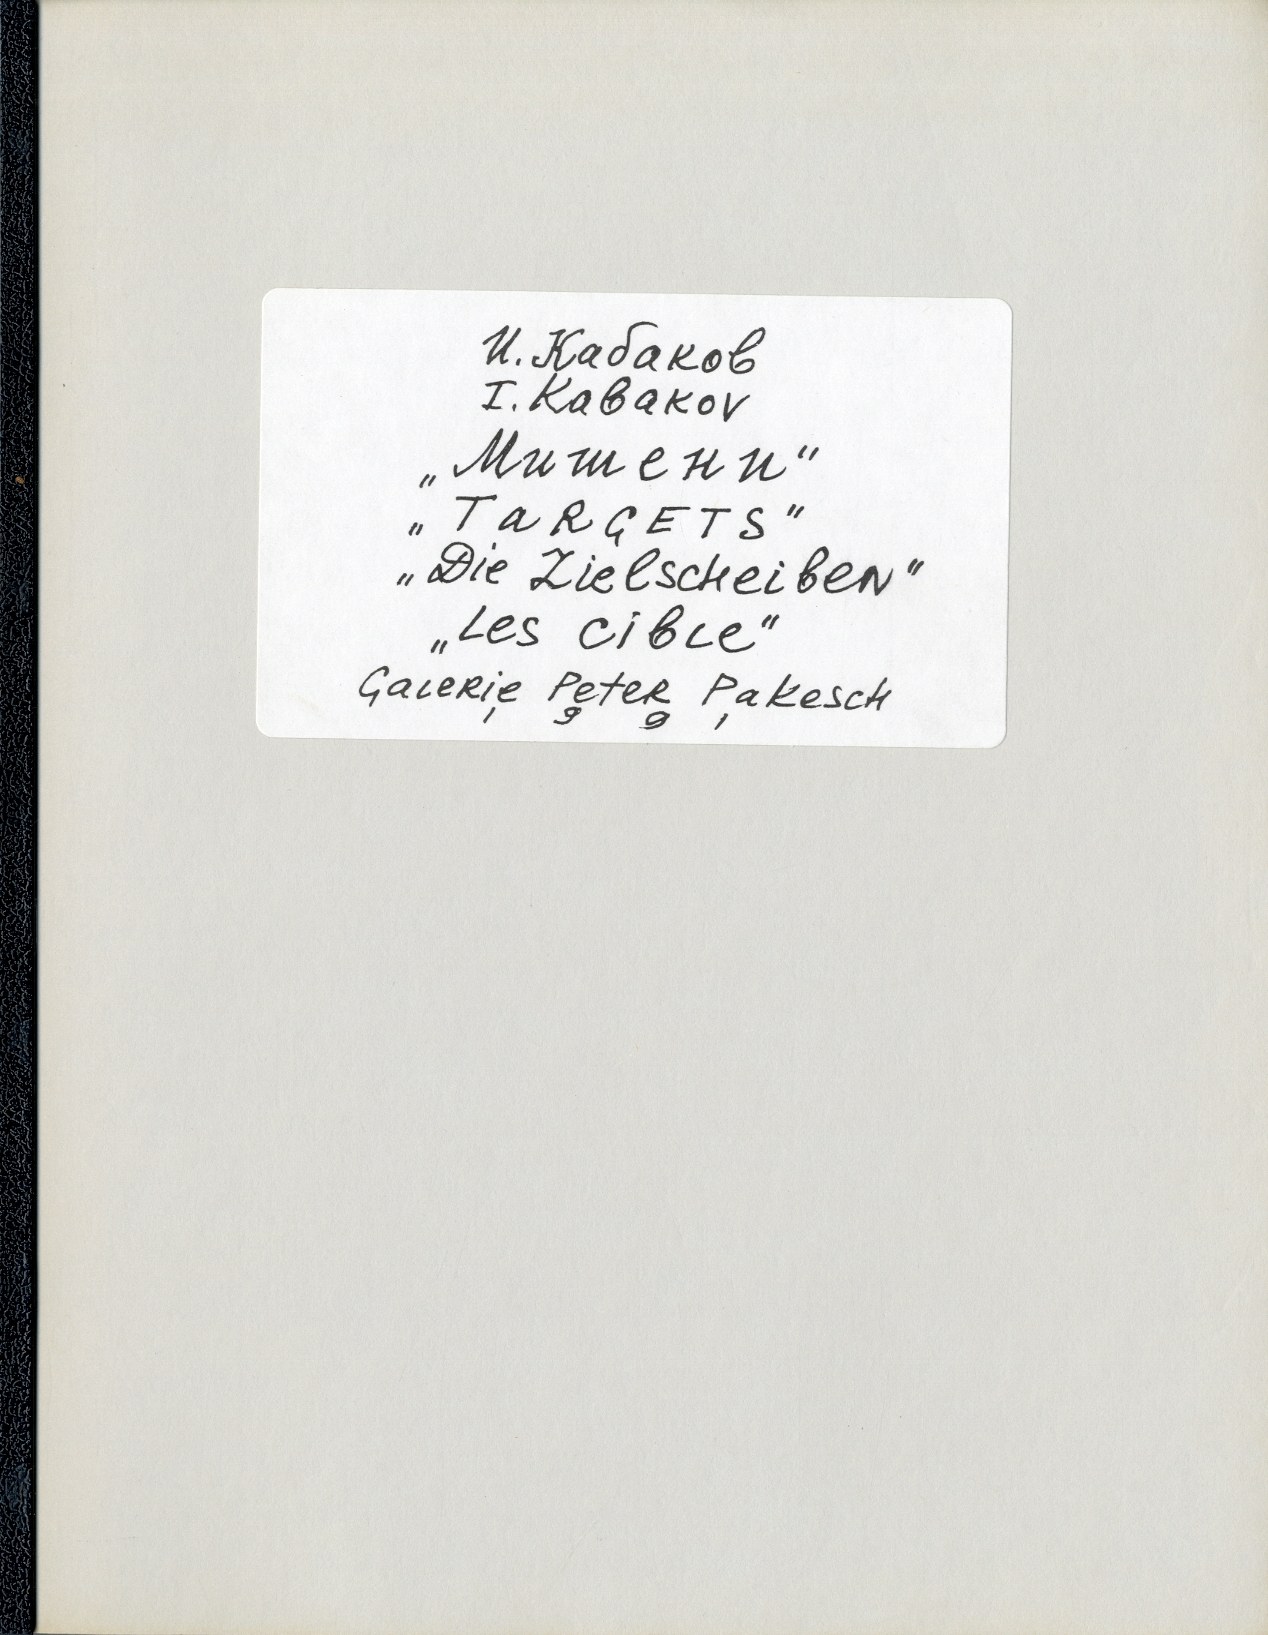 И. Кабаков
I. Kabakov
„Мишени“
„TaRGETS”
„Die Zielscheiben”
„Les cible”
Galerie Peter Pakesch
1 9 9 1